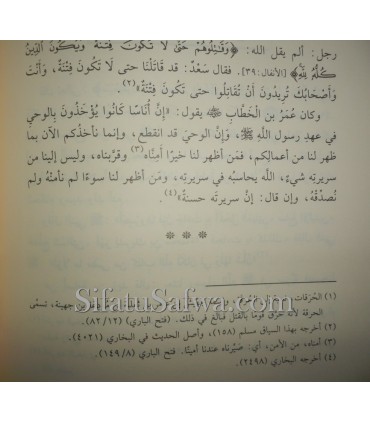 رجل: ألم يقل الله: ﴿وَقَٰتِلُوهُمْ حَتَّىٰ لَا تَكُونَ فِتْنَةٌ وَيَكُونَ ٱلدِّينُ
كُلُّهُ لِلَّهِ﴾ [الأنفال: ٣٩]. فقال سَعْدٌ: قد قَاتَلْنَا حتى لَا تَكُونَ فِتْنَةٌ، وَأَنْتَ
وَأَصْحَابُكَ تُرِيدُونَ أَنْ تُقَاتِلُوا حتى تَكُونَ فِتْنَةٌ»(٢).
وكان عُمَرُ بن الْخَطَّابِ ﷺ يقول: «إِنَّ أُنَاسًا كَانُوا يُؤْخَذُونَ بِالوحي
في عهدِ رسولِ اللَّهِ ﷺ، وَإِنَّ الوحيَ قد انقطع، وإنما نأخذُكم الآن بما
ظهر لنا من أعمالِكم، فمَن أظهر لنا خيرًا أَمِنَّاه(٣) وقرَّبناه، وليس إلينا من
سريرتِه شيءٌ، اللَّه يحاسبُه في سريرتِه، ومَن أظهر لنا سوءًا لم نأمنْهُ ولم
نُصدِّقْهُ، وإن قال: إنَّ سريرتَه حسنةٌ»(٤).
* * *
(١) الحُرَقات جهينة، تسمَّى
الحرقة لأنه حرَّق قومًا بالقتل فبالغ في ذلك. (فتح الباري) (١٢/ ٨٢).
(٢) أخرجه بهذا السياق مسلم (١٥٨)، وأصل الحديث في البخاري (٤٠٢١).
(٣) أمناه، من الأمن، أي: صَيَّرناه عندنا أمينًا. فتح الباري (٨/ ١٤٩).
(٤) أخرجه البخاري (٢٤٩٨).
SifatuSafwa.com